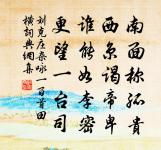 南面称孤贵
西京谒帝卑
谁能如李密
更望一台司
刘克庄杂咏一百首田
横词典网集